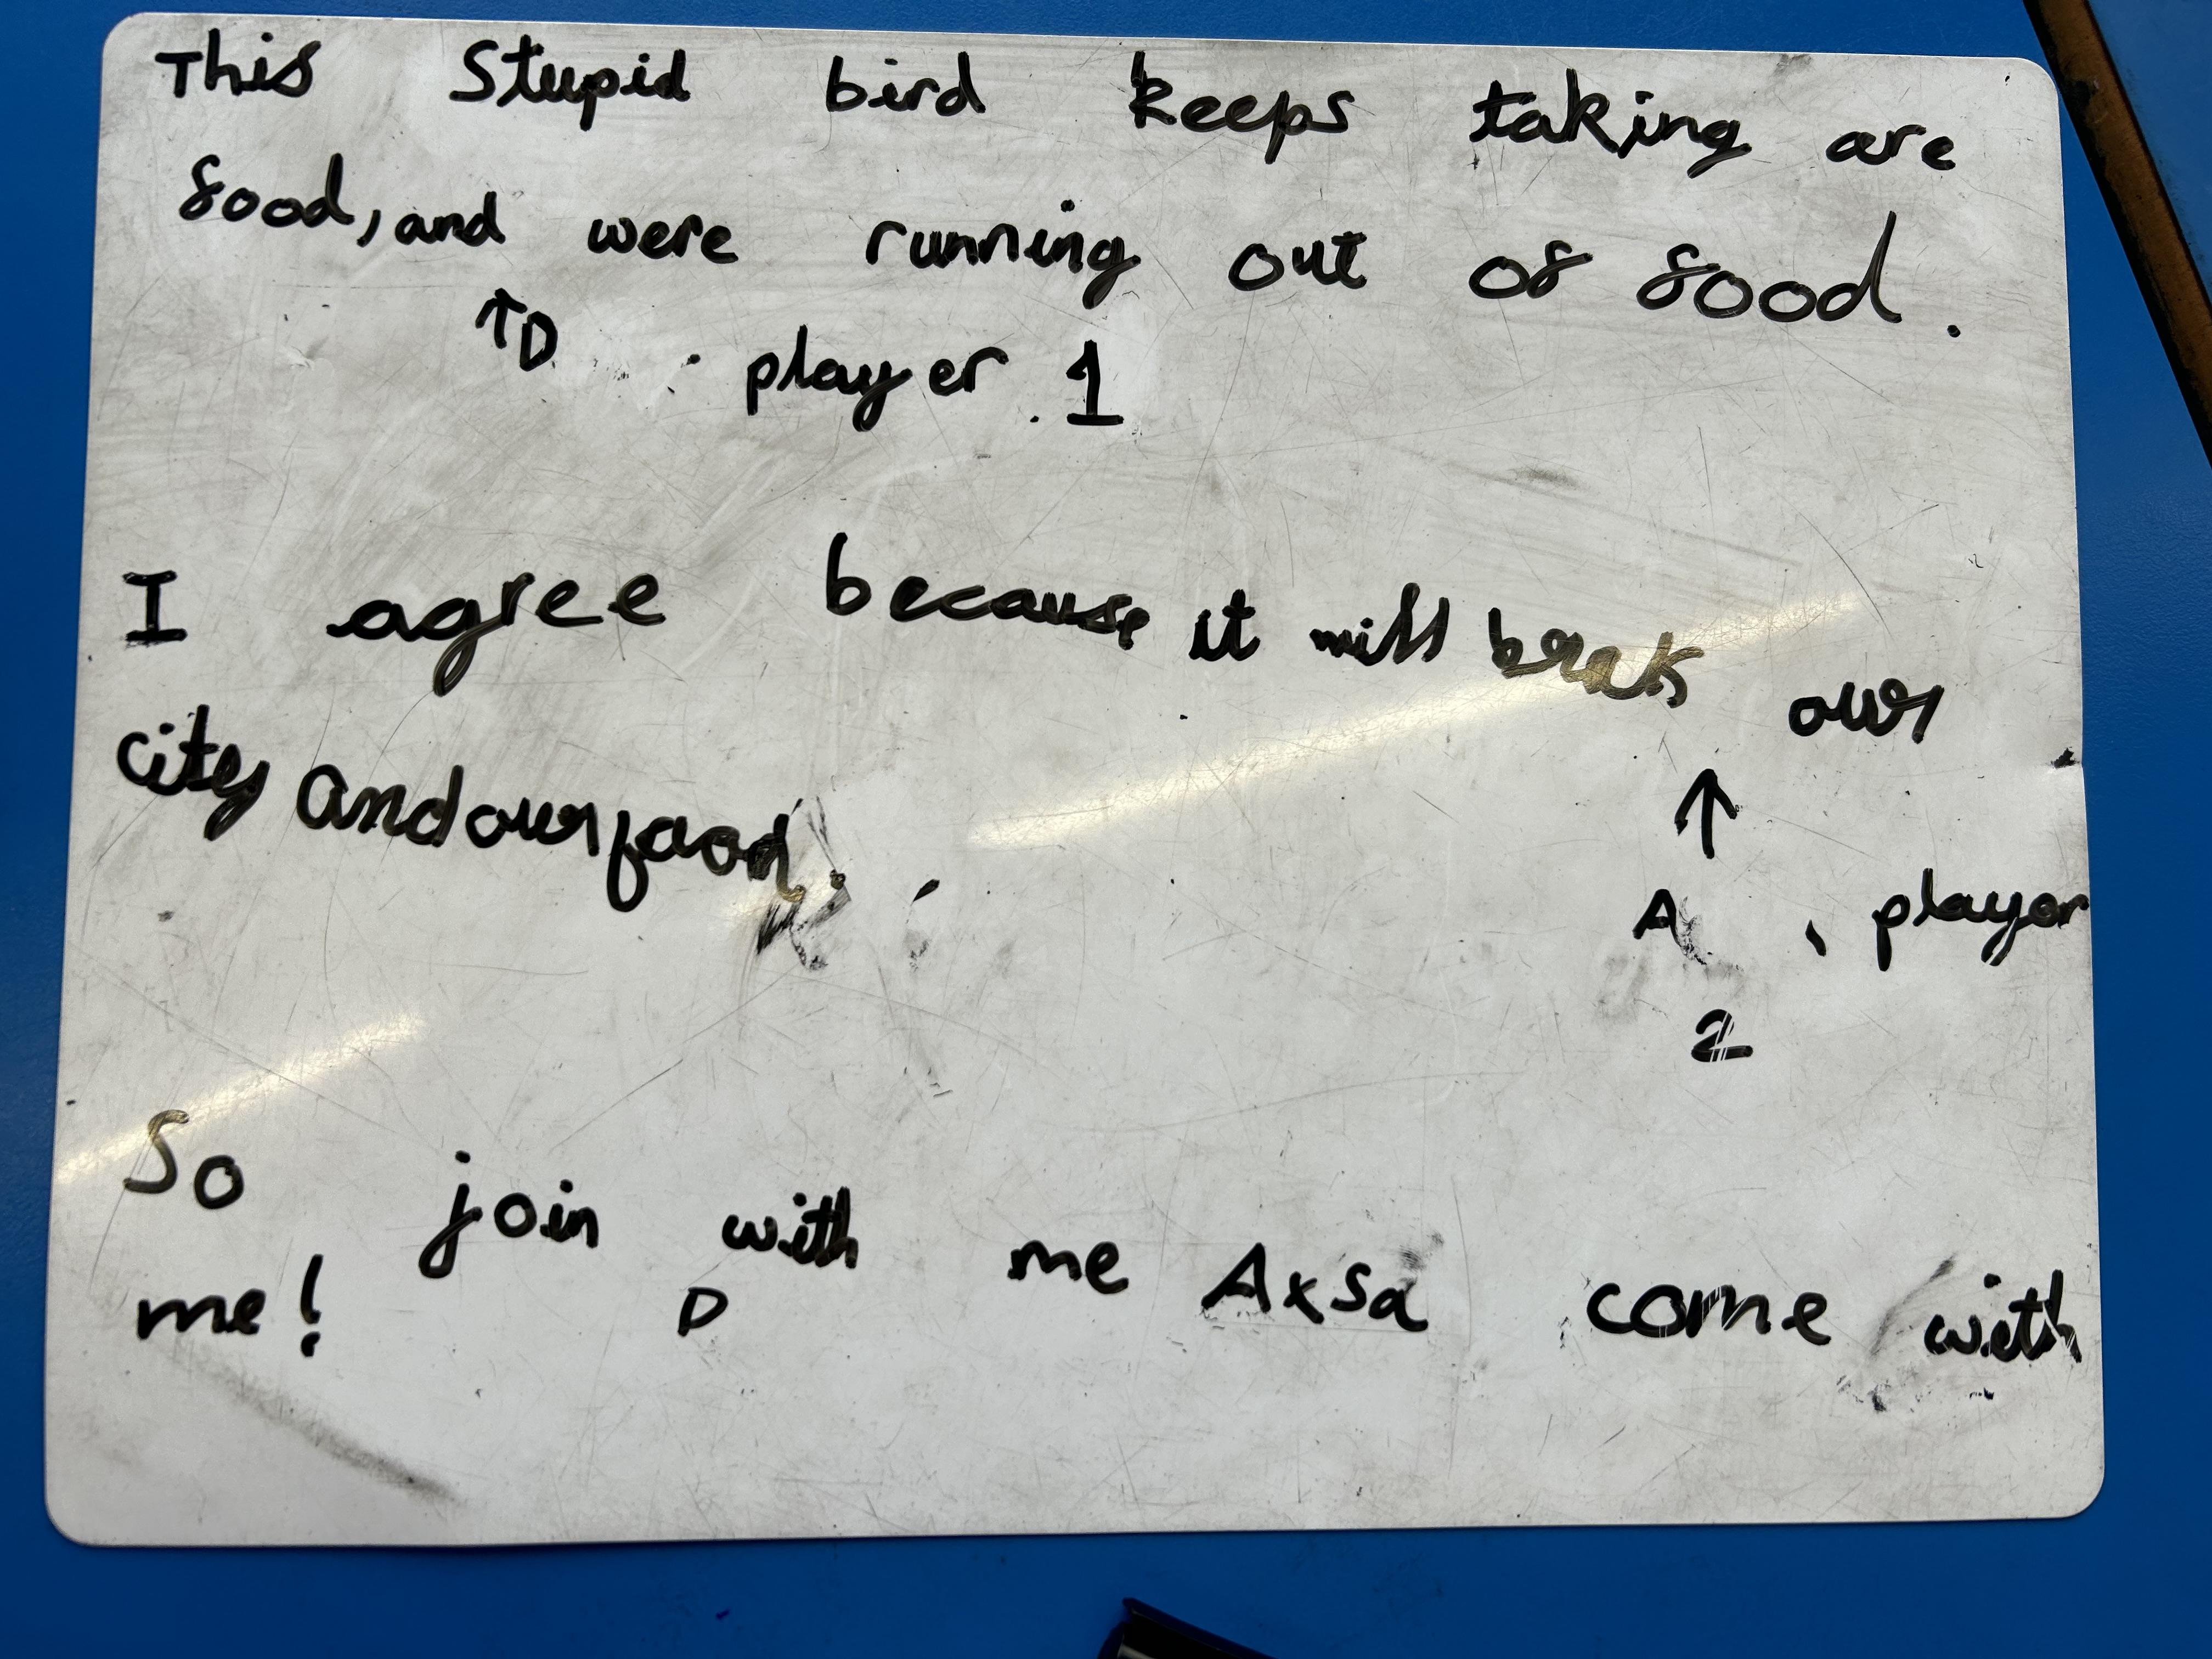 This Stupid bird keeps taking are
food, and were running out of food.
↑D player 1
I agree because it will break our
city and our food.
↑
A player
2
So join with me Axsa come with
me! D